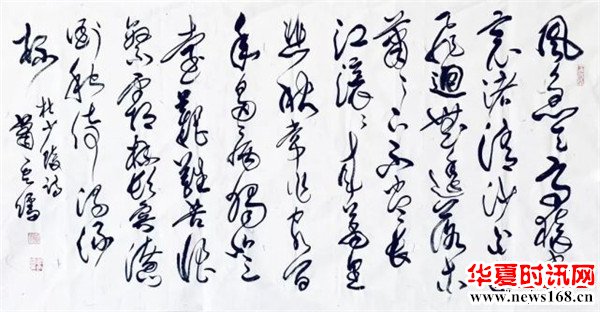 風急天高猿嘯
哀渚清沙白鳥
飛迴無邊落木
蕭〻下不盡長
江滚〻来萬里
悲秋常作客百
年多病獨登
臺艱難苦恨
繁霜鬢潦
倒新停濁酒
杯
杜少陵詩
蕭雲儒
华夏时讯网
http://www.news168.com.cn